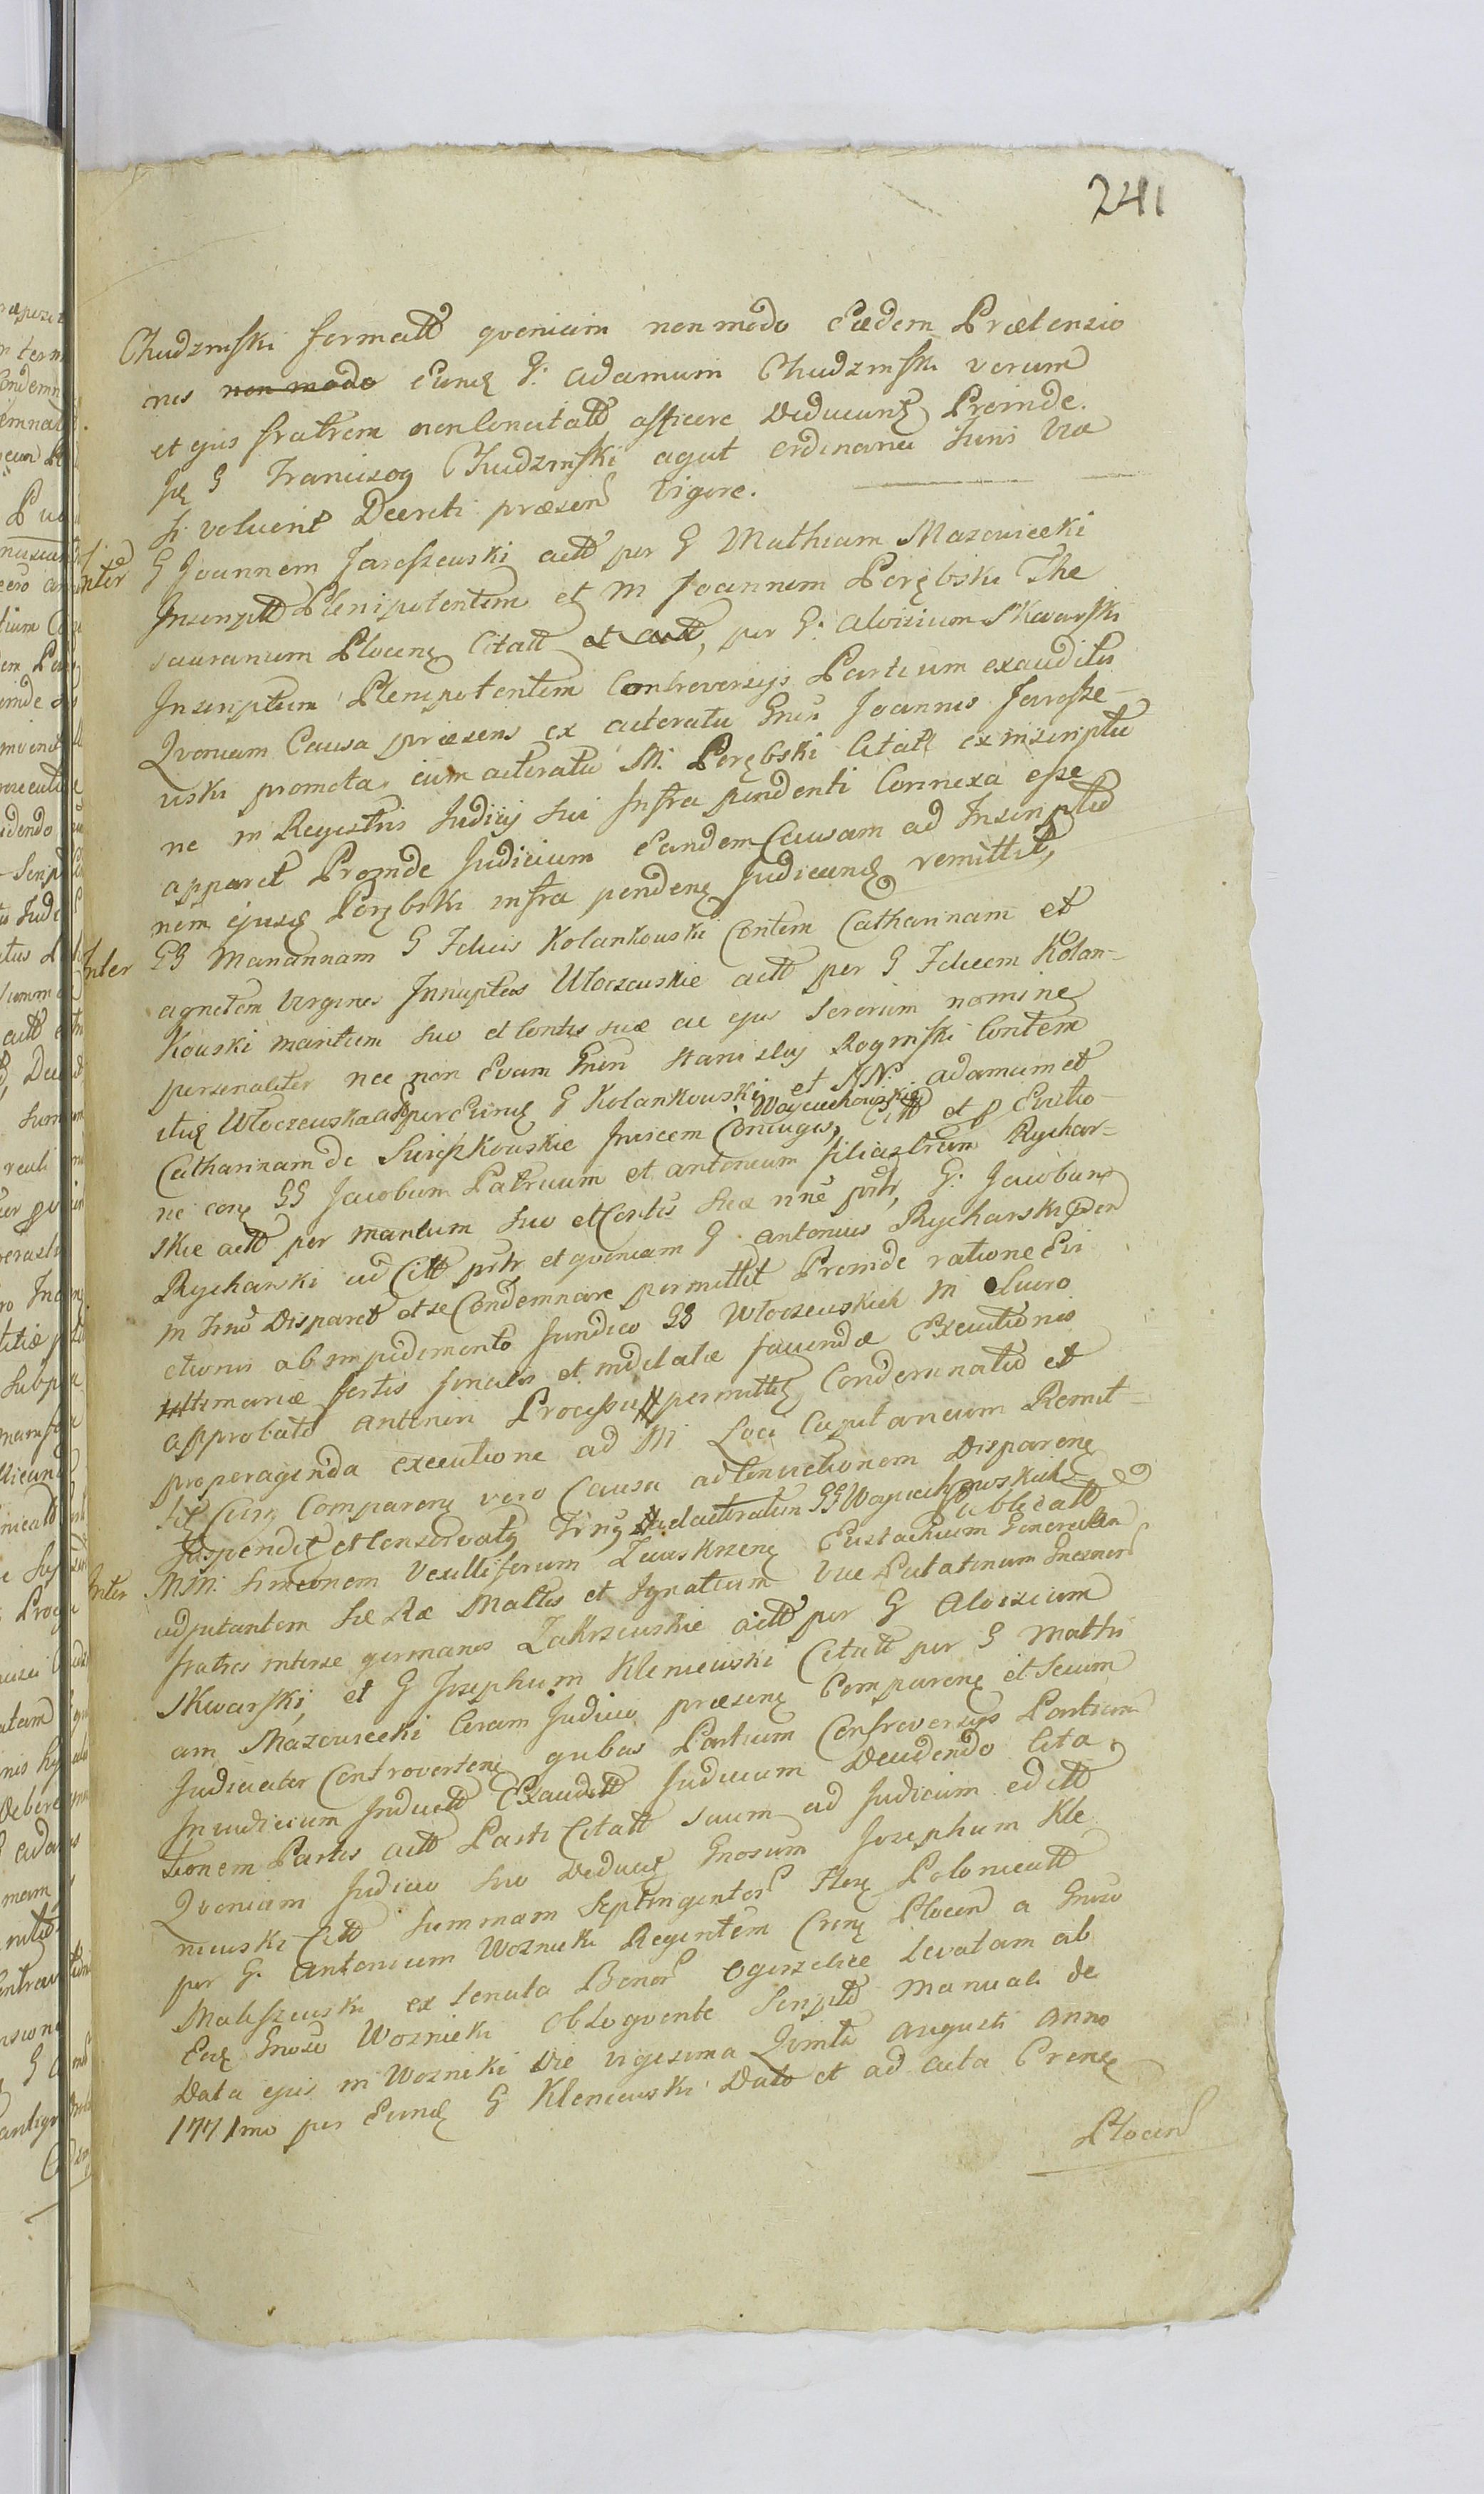 241
Chudzinski formatt qvoniam non modo Eædem Prætensio
nes non modo Eund G: Adamum Chudzinski verum
et ejus fratrem non Concitatt afficere Deducunt Proinde
G Franciscg Chudzinski agat ordinaria Juris via
si voluerit Decreti præsen Vigore.
Inter G Joannem Jaroszewski actt per G Mathiam Mazowiecki
Inscriptt Plenipotentem et M Joannem Porębski The
sauranum Plocens Citatt et actt, per G: Aloisium Skwarski
Inscriptum Plenipotentem Controversijs Partium exauditis
Qvoniam Causa præsens ex actoratu Gnsi Joannis Jarosze-
wski promota cum actoratu M. Porębski Citatt ex inscriptio
ne in Registris Judicij sui Infra pendenti Connexa esse
apparet Proinde Judicium Eandem Causam ad Inscriptio
nem ejusd Porębski infra pendent Judicand remittit,
Inter GG Mariannam G Felicis Kolankowski Contem Catharinam et
Agnetem Virgines Innuptas Wloczewskie actt per G Felicem Kolan-
kowski maritum suo et Contis suæ ac ejus Sororum nomine
personaliter nec non Evam Gnsi Stanislaj Roginski Contem
itid Wloczewska actt per Eund G Kolankowski et NN. Adamum et
Catharinam de Swieszkowskie Invicem Conjuges Woyciechowskie, Citt et p Evictio
ne conv GG Jacobum Patruum et Antonium filiastrum Rychar-
skie actt per maritum suo et Contis suæ nne pntr, G: Jacobum
Rycharski ad Citt pntr et qvoniam G Antonius Rycharski Den
in Trno Disparet et se Condemnare permittit Proinde ratione Evi
ctionis ab impedimento Juridico GG Wloczewskich in Lucro
ultimariæ sortis simulis et indilatæ faciendæ Executionis
approbato anteriori Processu permittit Condemnatio et
pro peragenda executione ad M Loci Capitaneum Remit-
tit Cum Comparent vero Causa ad Convictionem Disparent
Suspendit et Conservatg Trng ad actoratum GG Woyciechowskich
Publicatt
Inter MM. Simeonem Vexilliferum Zawskrzens Eustachium Generalem
adjutantem Sæ Ræ Mattis et Ignatium Vice Palatinum Gnesnens
fratres interse germanos Zakrzewskie actt per G Aloisium
Skwarski, et G Josephum Kleniewski Citatt per G Mathi
am Mazowiecki Coram Judicio præsent Comparent et Secum
Judicialiter Controvertent qvibus Partium Controversijs Partium
In judicium Inductt Exauditt Judicium Decidendo Cita
tionem Partis actt Parti Citatt suum ad Judicium editt
Qvoniam Judicio suo Deduct Gnosum Josephum Kle
niewski Citt Summam Septingentor Flor Polonicatt
per G. Antonium Woznicki Regentem Crens Plocen a Gnoso
Maliszewski ex tenuta Bonor Ogorzelice levatam ab
Eod Gnoso Woznicki Obloqvente Scripto Manuali de
Data ejus in Wozniki Die vigesima Qvinta Augusti Anno
1771mo per Eund G Kleniewski Dato et ad acta Crens
Plocens